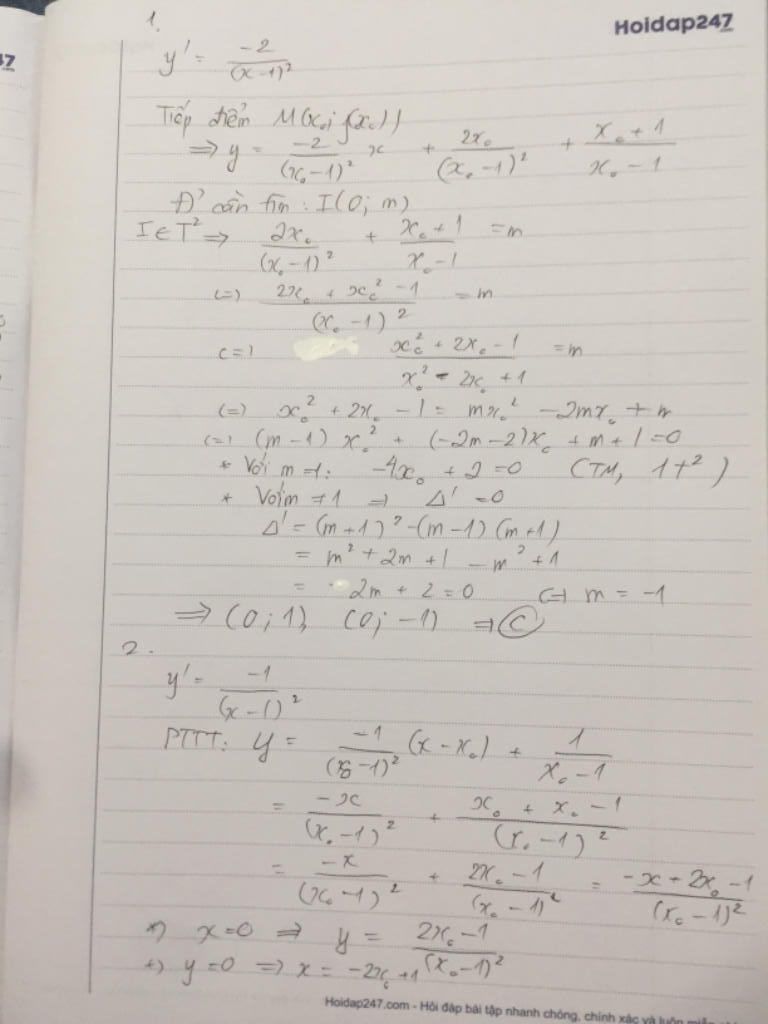 Hoidap247
.com
47
1.
y' = -2/(x-1)²
Tiếp điểm M(x₀; f(x₀))
⇒ y = -2/(x₀-1)² x + 2x₀/(x₀-1)² + (x₀+1)/(x₀-1)
Đ' cần tìm: I(0; m)
I ∈ T² ⇒ 2x₀/(x₀-1)² + (x₀+1)/(x₀-1) = m
(=) (2x₀ + x₀² - 1)/(x₀-1)² = m
(=) (x₀² + 2x₀ - 1)/(x₀² - 2x₀ + 1) = m
(=) x₀² + 2x₀ - 1 = mx₀² - 2mx₀ + m
(=) (m-1)x₀² + (-2m-2)x₀ + m+1 = 0
* Với m=1: -4x₀ + 2 = 0 (TM, 1t²)
* Với m ≠ 1 ⇒ Δ' = 0
Δ' = (m+1)² - (m-1)(m+1)
= m² + 2m + 1 - m² + 1
= 2m + 2 = 0 (=) m = -1
⇒ (0; 1), (0; -1) ⇒ C
2.
y' = -1/(x-1)²
PTTT: y = -1/(x₀-1)² (x-x₀) + 1/(x₀-1)
= -x/(x₀-1)² + (x₀ + x₀ - 1)/(x₀-1)²
= -x/(x₀-1)² + (2x₀-1)/(x₀-1)² = (-x + 2x₀ - 1)/(x₀-1)²
+) x=0 ⇒ y = (2x₀-1)/(x₀-1)²
+) y=0 ⇒ x = -2x₀+1
Hoidap247.com - Hỏi đáp bài tập nhanh chóng, chính xác và luôn miễn